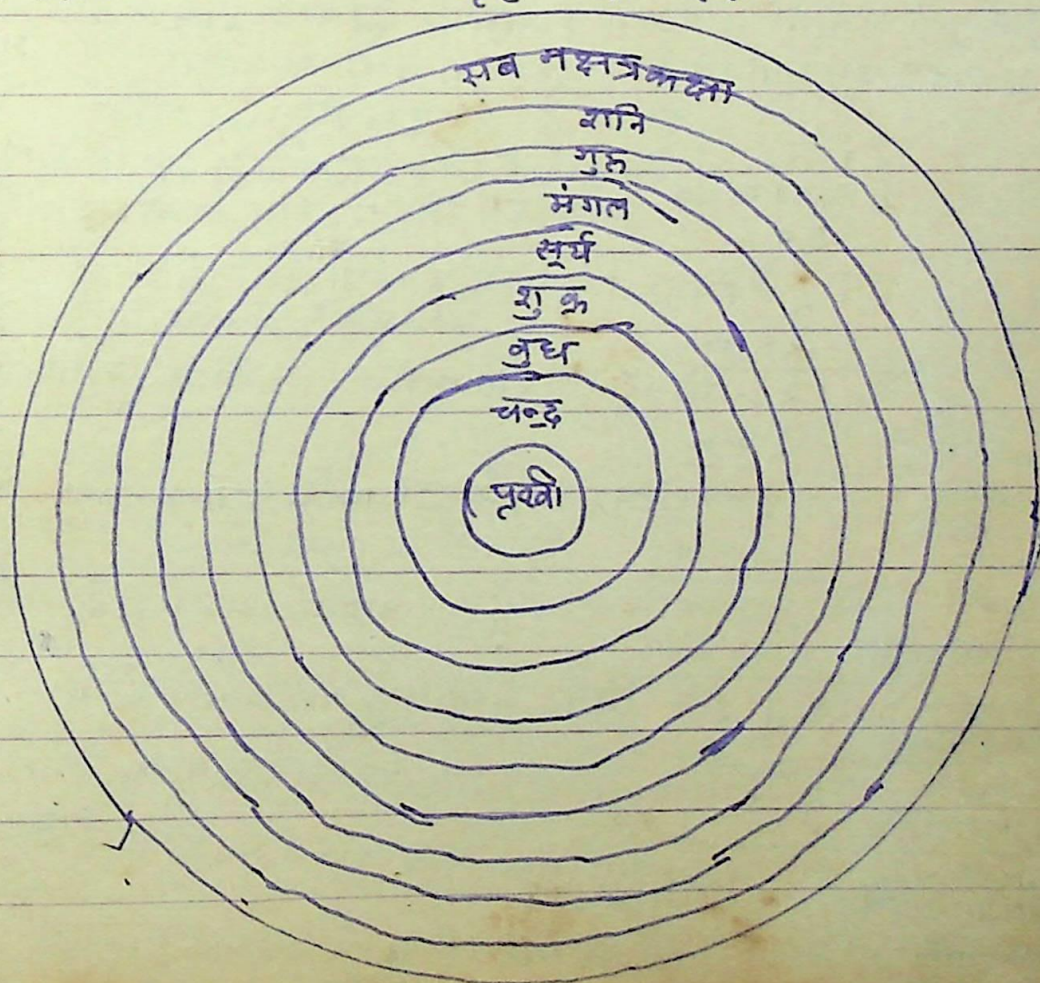 सब नक्षत्रकक्षा
शनि
गुरू
मंगल
सूर्य
शुक्र
बुध
चन्द्र
पृथ्वी